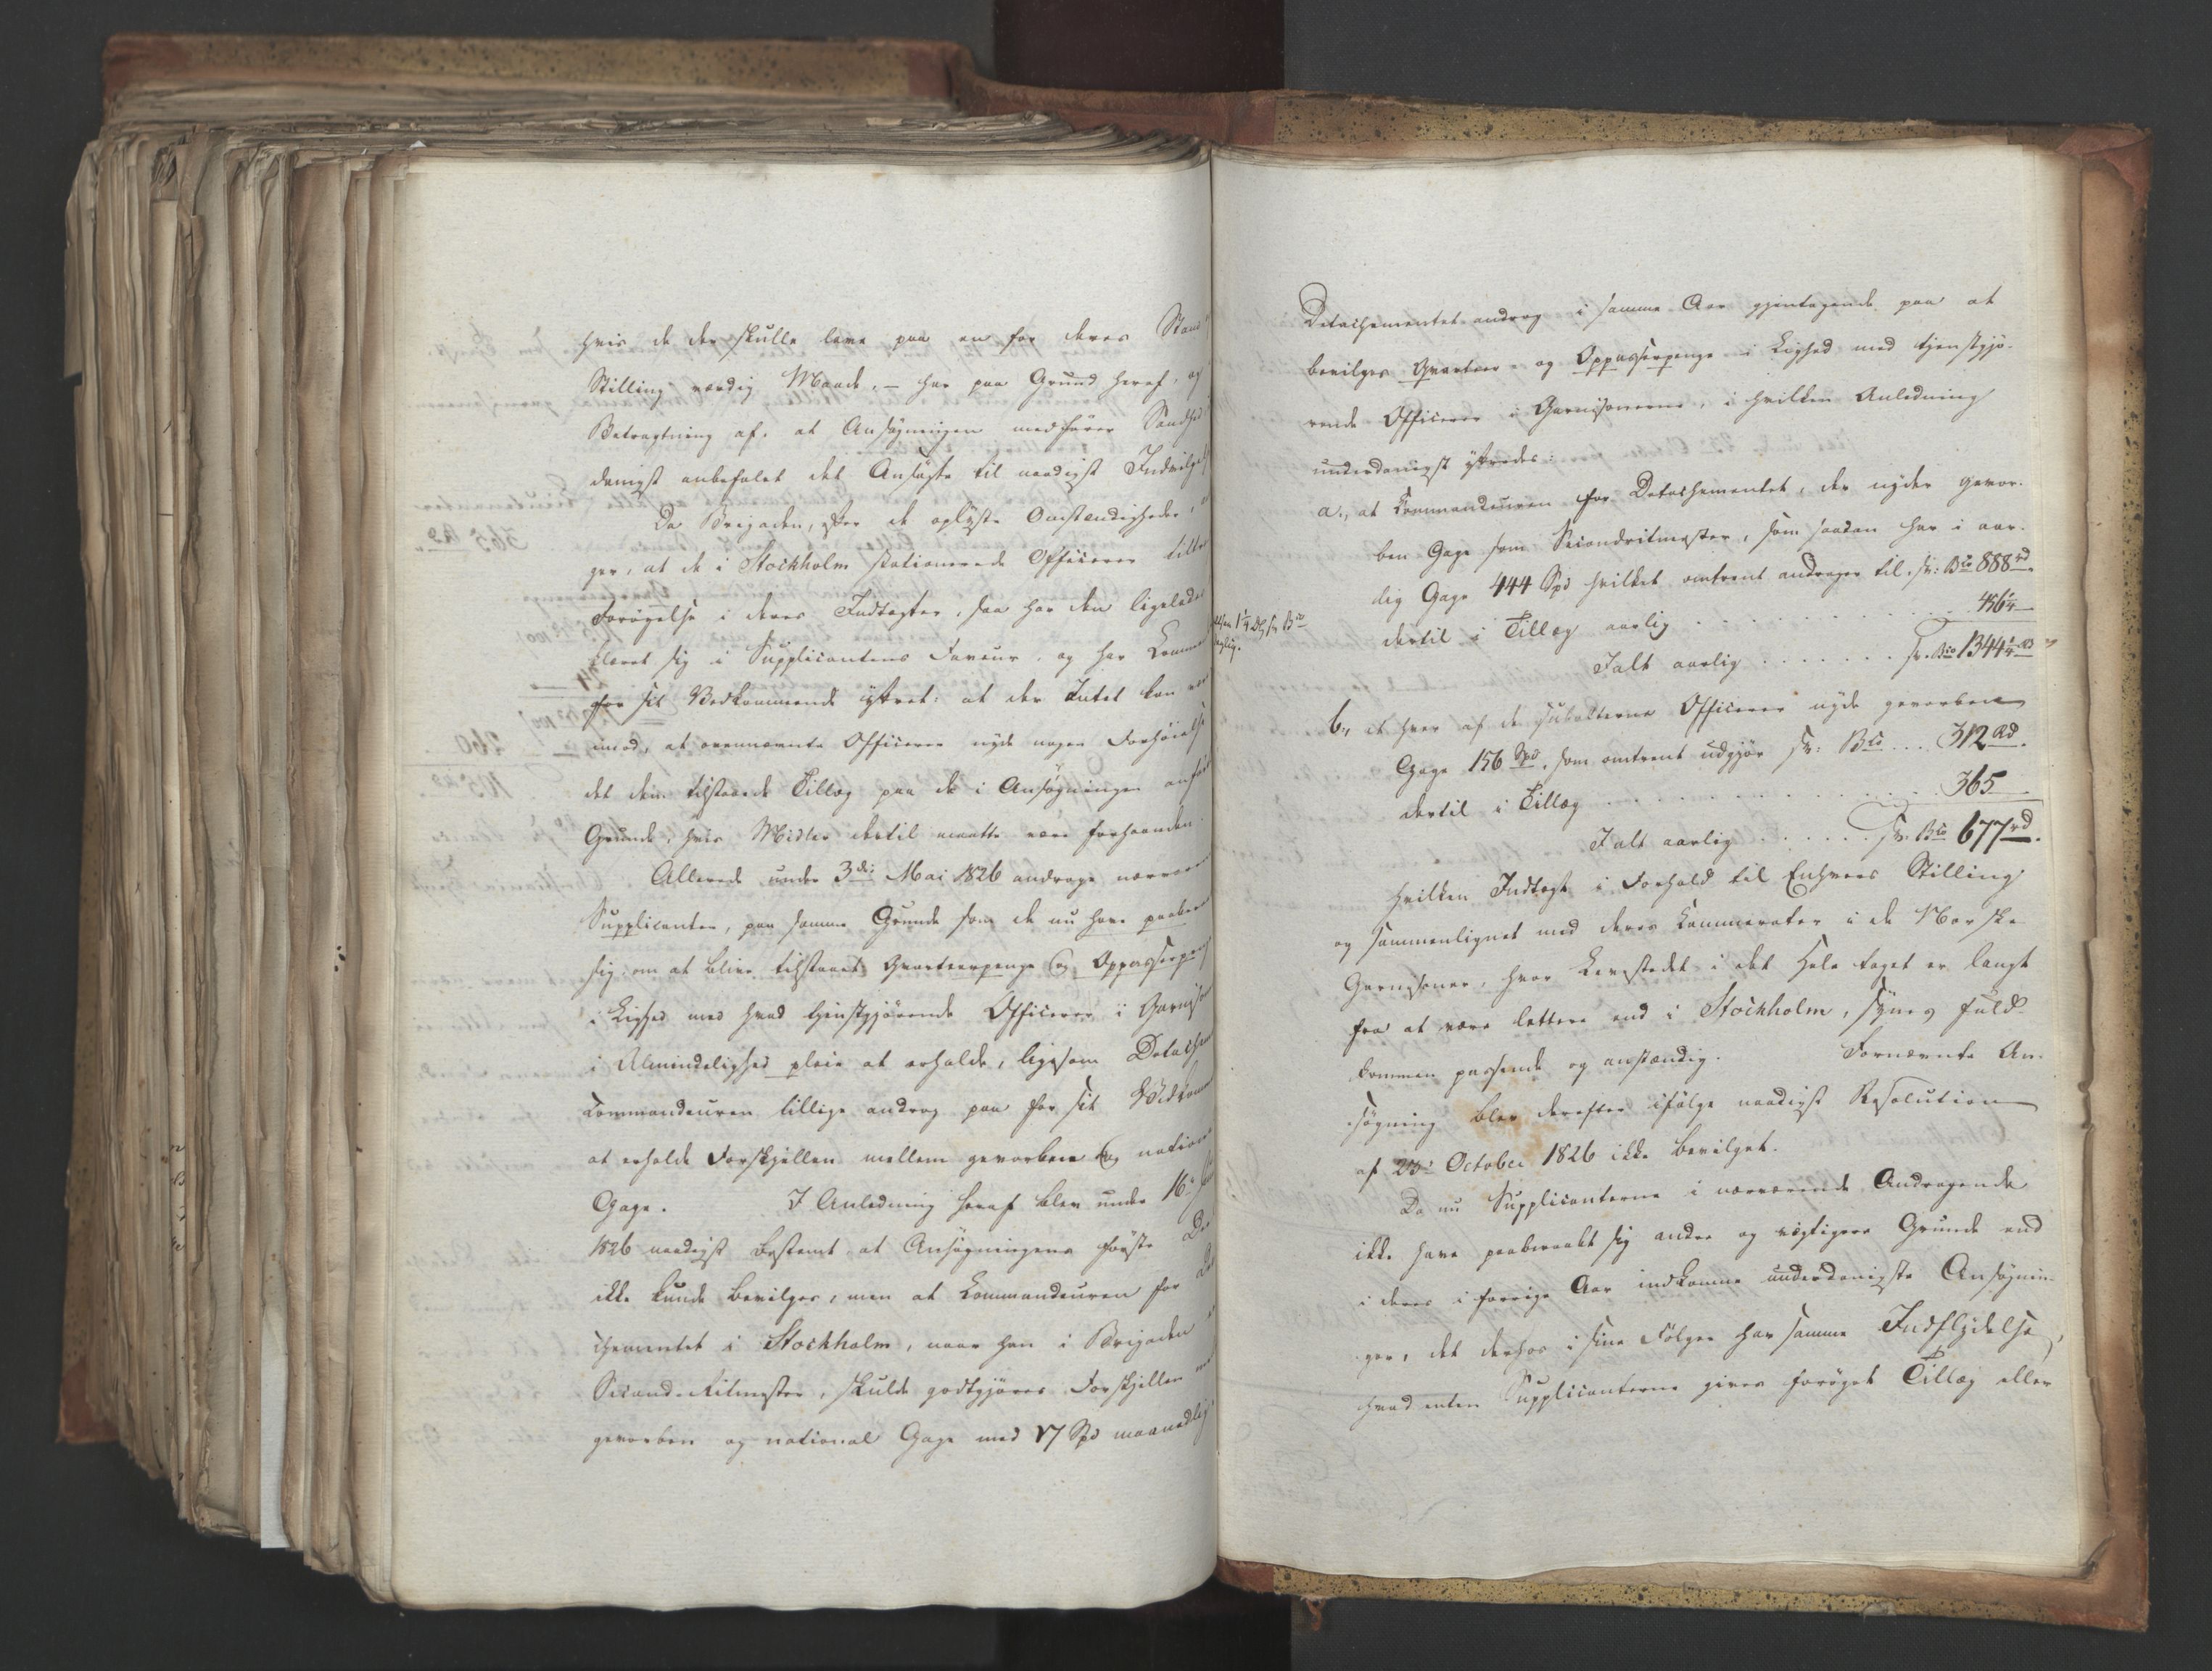 hvis de der skulle leve paa en for deres Stand
Stilling værdig Maade, – har paa Grund heraf, og
Betragtning af, at Ansøgningen medfører Sandhed
danigst anbefalet det Ansøgte til naadigst Indvilgel
Da Brigaden, efter de oplyste Omstændigheder,
ger, at de i Stockholm stationerede Officerer
Forøgelse i deres Indtægter, saa har den ligeledes
klæret sig i Supplicantens Faveur, og har
for sit Vedkommende yttret: at der Intet kan
imod, at ovennævnte Officerer nyde nogen Forhøielse
det dem tilstaaede Tillæg paa de i Ansøgningen
Grunde, hvis Midler dertil maatte være forhaanden.
Allerede under 3die Mai 1826 androge
Supplicanter, paa samme Grunde som de nu have
sig om at blive tilstaaet Qvarteerpenge og Oppasserpenge
i Lighed med hvad tjenstgjørende Officerer i
i Almindelighed pleie at erholde, ligesom
Commandeuren tillige androg paa for sit
at erholde Forskjellen mellem gevorben og
Gage. I Anledning heraf blev under 16
1826 naadigst bestemt at Ansøgningens første
ikke kunde bevilges, men at Kommandeuren for
chementet i Stockholm, naar han i Brigaden
Second-Ritmester, skulde godtgjøres Forskjellen
gevorben og national Gage med 17 Spd maanedlig
Detachementet androg i samme Aar gjentagende paa at
bevilges Qvarteer- og Oppasserpenge i Lighed med tjenstgjø-
rende Officerer i Garnisonerne, i hvilken Anledning
underdanigst yttredes:
a., at Commandeuren for Detachementet, der nyder gevor-
ben Gage som Secondritmester, som saadan har i aar-
lig Gage 444 Spd hvilket omtrent andrager til Sv: Bco 888 rd
dertil i Tillæg aarlig . . . . . . . 456¼
Ialt aarlig . . . . . . . Sv. Bco 1344¼ rd
b., at hver af de subalterne Officerer nyde gevorben
Gage 156 Spd, som omtrent udgjør Sv: Bco . . . 312 Rd.
dertil i Tillæg . . . . . . . 365
Ialt aarlig . . . . . . Sv. Bco 677 rd.
hvilken Indtægt i Forhold til Enhvers Stilling
og sammenlignet med deres Kammerater i de Norske
Garnisoner, hvor Levestedet i det Hele taget er langt
fra at være lettere end i Stockholm, synes fuld-
kommen passende og anstændig. Fornævnte An-
søgning blev derefter ifølge naadigst Resolution
af 23 October 1826 ikke bevilget.
Da nu Supplicanterne i nærværende Andragende
ikke have paaberaabt sig andre og vigtigere Grunde end
i deres i forrige Aar indkomne underdanigste Ansøgnin-
ger, det derhos i sine Følger har samme Indflydelse,
hvad enten Supplicanterne gives forøget Tillæg eller